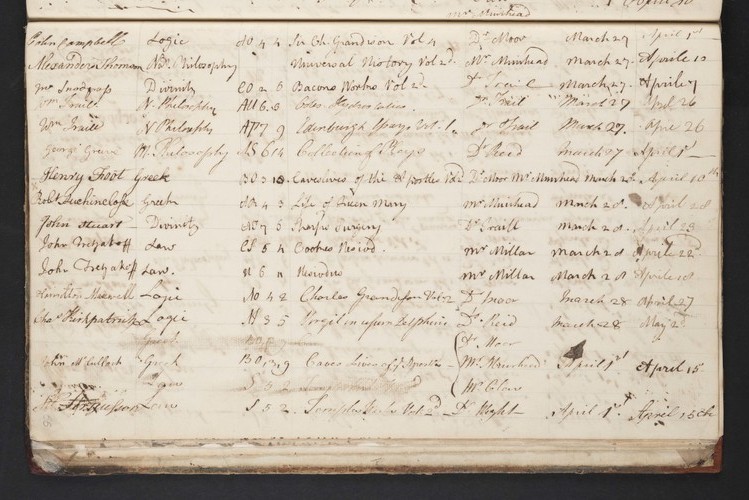 Mr Muirhead
John Campbell Logic AO 4 4 Sir Ch. Grandison Vol 4 Dr Moor March 29 April 1st
Alexander Thomson Nat. Philosophy Universal History Vol 2d Mr Muirhead March 27. Aprile 10
Mr Snodgras Divinity CO 2 6 Bacons Works Vol 2d Dr Trail March 27. Aprile 7
Wm Traill N. Philosophy Dr Trail March 27 April 26
Wm Traill N Philosophy AP 7 9 Edinburgh Essays Vol. 1. Dr Trail March 27. April 26
George N. Philosophy Collection of Plays Dr Reid March 27 April 1st
Henry Foot Greek BO 3 18. Caves lives of the Apostles Vol 2d Dr Moor Mr Muirhead March 2 April 10th
Robt Greek AR 4 3 Life of Queen Mary Mr Muirhead March 28. April 28
John Stuart Divinity AO 7 5 Sharps Surgery Dr Traill March 28. April 23
John Tretyakoff Law CI 5 4 Cookes Mr Millar March 28 Aprile 22d
John Tretyakoff Law. N 6 Mr Millar March 28 Aprile 18
Hamilton Maxwell Logic AO 4 2 Charles Grandison Vol. 2 Dr Moor March 28 April 27
Chas Kirkpatrick Logic N 3 5 Virgil in usum Delphini Dr Reid March 28 May 2
Greek Dr Moor
John McCulloch Greek BO 7 9 Caves Lives of ye Apostles Mr Muirhead April 1st April 15
Law S 5 2 Mr Clow
Fergusson Law S 5 2 Temples Works Vol 2d Dr Wight April 1st April 15th